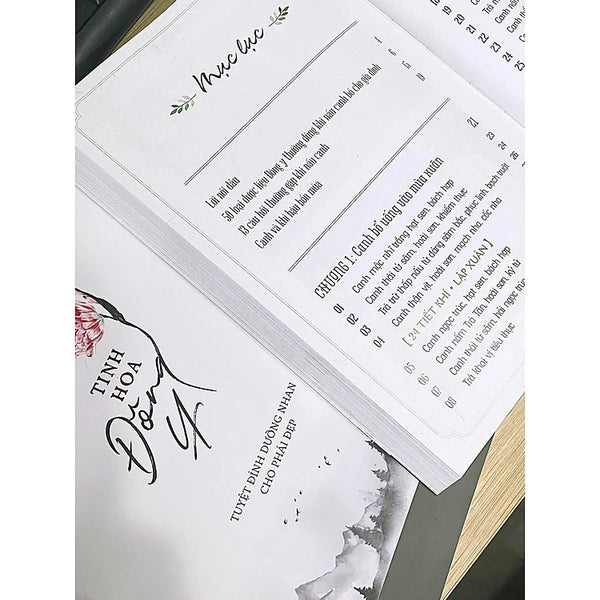 Mục lục
Lời nói đầu
50 loại dược liệu Đông y thường dùng khi nấu canh bổ cho gia đình
13 câu hỏi thường gặp khi nấu canh
Canh và khí hậu bốn mùa
CHƯƠNG 1: Canh bổ uống vào mùa xuân
21
01 Canh mộc nhĩ trắng, hạt sen, bách hợp
02 Canh thái tử sâm, hoài sơn, khiếm thực
03 Trà trừ thấp nấu từ đảng sâm bắc, phục linh, bạch truật
04 Canh thận vịt, hoài sơn, mạch nha, cốc nha
[ 24 TIẾT KHÍ • LẬP XUÂN ]
05 Canh ngọc trúc, hạt sen, bách hợp
06 Canh nấm Trà Tân, hoài sơn, kỷ tử
07 Canh thái tử sâm, hải ngọc trúc
08 Trà khai vị tiêu thực
18
19
20
21
22
23
TINH HOA
Đông y
TUYỆT ĐỈNH DƯỠNG NHAN
CHO PHÁI ĐẸP